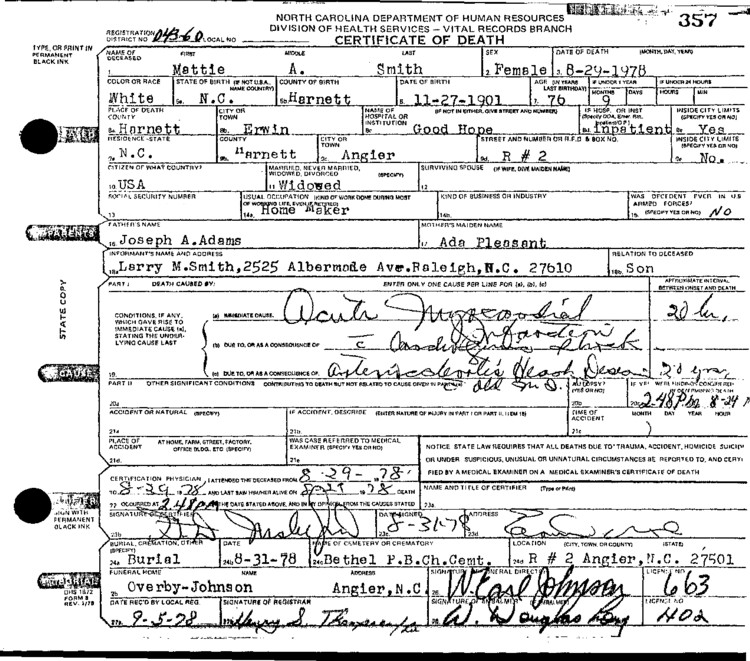 NORTH CAROLINA DEPARTMENT OF HUMAN RESOURCES
357
DIVISION OF HEALTH SERVICES – VITAL RECORDS BRANCH
REGISTRATION DISTRICT NO. 043-60 LOCAL NO.
CERTIFICATE OF DEATH
TYPE, OR PRINT IN PERMANENT BLACK INK
NAME OF DECEASED FIRST MIDDLE LAST SEX DATE OF DEATH (MONTH, DAY, YEAR)
1. Mattie A. Smith 2. Female 3. 8-29-1978
COLOR OR RACE STATE OF BIRTH (IF NOT U.S.A., NAME COUNTRY) COUNTY OF BIRTH DATE OF BIRTH AGE (IN YEARS LAST BIRTHDAY) IF UNDER 1 YEAR IF UNDER 24 HOURS
MONTHS DAYS HOURS MIN
White 5a. N.C. 5b. Harnett 6. 11-27-1901 7. 76 9
PLACE OF DEATH COUNTY CITY OR TOWN NAME OF HOSPITAL OR INSTITUTION (IF NOT IN EITHER, GIVE STREET AND NUMBER) IF HOSP. OR INST INSIDE CITY LIMITS (SPECIFY YES OR NO)
8a. Harnett 8b. Erwin 8c. Good Hope 8d. Inpatient 8e. Yes
RESIDENCE-STATE COUNTY CITY OR TOWN STREET AND NUMBER OR R.F.D & BOX NO. INSIDE CITY LIMITS (SPECIFY YES OR NO)
9a. N.C. 9b. Harnett 9c. Angier 9d. R # 2 9e. No.
CITIZEN OF WHAT COUNTRY? MARRIED, NEVER MARRIED, WIDOWED, DIVORCED (SPECIFY) SURVIVING SPOUSE (IF WIFE, GIVE MAIDEN NAME)
10. USA 11. Widowed 12.
SOCIAL SECURITY NUMBER USUAL OCCUPATION (KIND OF WORK DONE DURING MOST OF WORKING LIFE, EVEN IF RETIRED) KIND OF BUSINESS OR INDUSTRY WAS DECEDENT EVER IN U.S ARMED FORCES?
13. 14a. Home Maker 14b. 15. (SPECIFY YES OR NO) NO
PARENTS
FATHER'S NAME MOTHER'S MAIDEN NAME
16. Joseph A.Adams 17. Ada Pleasant
INFORMANT'S NAME AND ADDRESS RELATION TO DECEASED
18a. Larry M.Smith,2525 Albermade Ave.Raleigh,N.C. 27610 18b. Son
STATE COPY
PART I. DEATH CAUSED BY: ENTER ONLY ONE CAUSE PER LINE FOR (a), (b), (c) APPROXIMATE INTERVAL BETWEEN ONSET AND DEATH
CONDITIONS, IF ANY, WHICH GAVE RISE TO IMMEDIATE CAUSE (a), STATING THE UNDERLYING CAUSE LAST
(a) IMMEDIATE CAUSE. Acute Myocardial Infarction 20 hr.
(b) DUE TO, OR AS A CONSEQUENCE OF.
CAUSE
19. (c) DUE TO, OR AS A CONSEQUENCE OF. 20 yrs,
PART II OTHER SIGNIFICANT CONDITIONS CONTRIBUTING TO DEATH BUT NOT RELATED TO CAUSE GIVEN IN PART I(a) AUTOPSY? (YES OR NO)
20a. 20b. 20c.
ACCIDENT OR NATURAL (SPECIFY) IF ACCIDENT, DESCRIBE (ENTER NATURE OF INJURY IN PART I OR PART II, ITEM 19) TIME OF ACCIDENT MONTH DAY YEAR HOUR
21a. 21b. 21c.
PLACE OF ACCIDENT AT HOME, FARM, STREET, FACTORY, OFFICE BLDG. ETC (SPECIFY) WAS CASE REFERRED TO MEDICAL EXAMINER (SPECIFY YES OR NO)
21d. 21e.
NOTICE STATE LAW REQUIRES THAT ALL DEATHS DUE TO TRAUMA, ACCIDENT, HOMICIDE
OR UNDER SUSPICIOUS, UNUSUAL OR UNNATURAL CIRCUMSTANCES BE REPORTED TO, AND CERTI
FIED BY A MEDICAL EXAMINER ON A MEDICAL EXAMINER'S CERTIFICATE OF DEATH
CERTIFICATION PHYSICIAN. I ATTENDED THE DECEASED FROM 8-29-78
TO 8-29 1978 AND LAST SAW HIM/HER ALIVE ON 1978 DEATH
22. OCCURRED AT 2:48 pm THE DATE STATED ABOVE, AND IN MY OPINION, FROM THE CAUSES STATED
NAME AND TITLE OF CERTIFIER (Type or Print)
23a.
SIGN WITH PERMANENT BLACK INK
SIGNATURE OF CERTIFIER DATE SIGNED ADDRESS
23b. 8-31-78
BURIAL, CREMATION, OTHER (SPECIFY) DATE NAME OF CEMETERY OR CREMATORY LOCATION (CITY, TOWN, OR COUNTY) (STATE)
24a. Burial 24b. 8-31-78 24c. Bethel P.B.Ch.Cemt. 24d. R # 2 Angier,N.C. 27501
FUNERAL HOME NAME ADDRESS SIGNATURE OF FUNERAL DIRECTOR LICENSE NO
25. Overby-Johnson Angier,N.C. W. Earl Johnson 663
DHS 1872
FORM 8
REV. 1/78
DATE REC'D BY LOCAL REG. SIGNATURE OF REGISTRAR SIGNATURE OF EMBALMER LICENSE NO
27a. 9-5-78 Henry S. Thompson W. Douglas 402